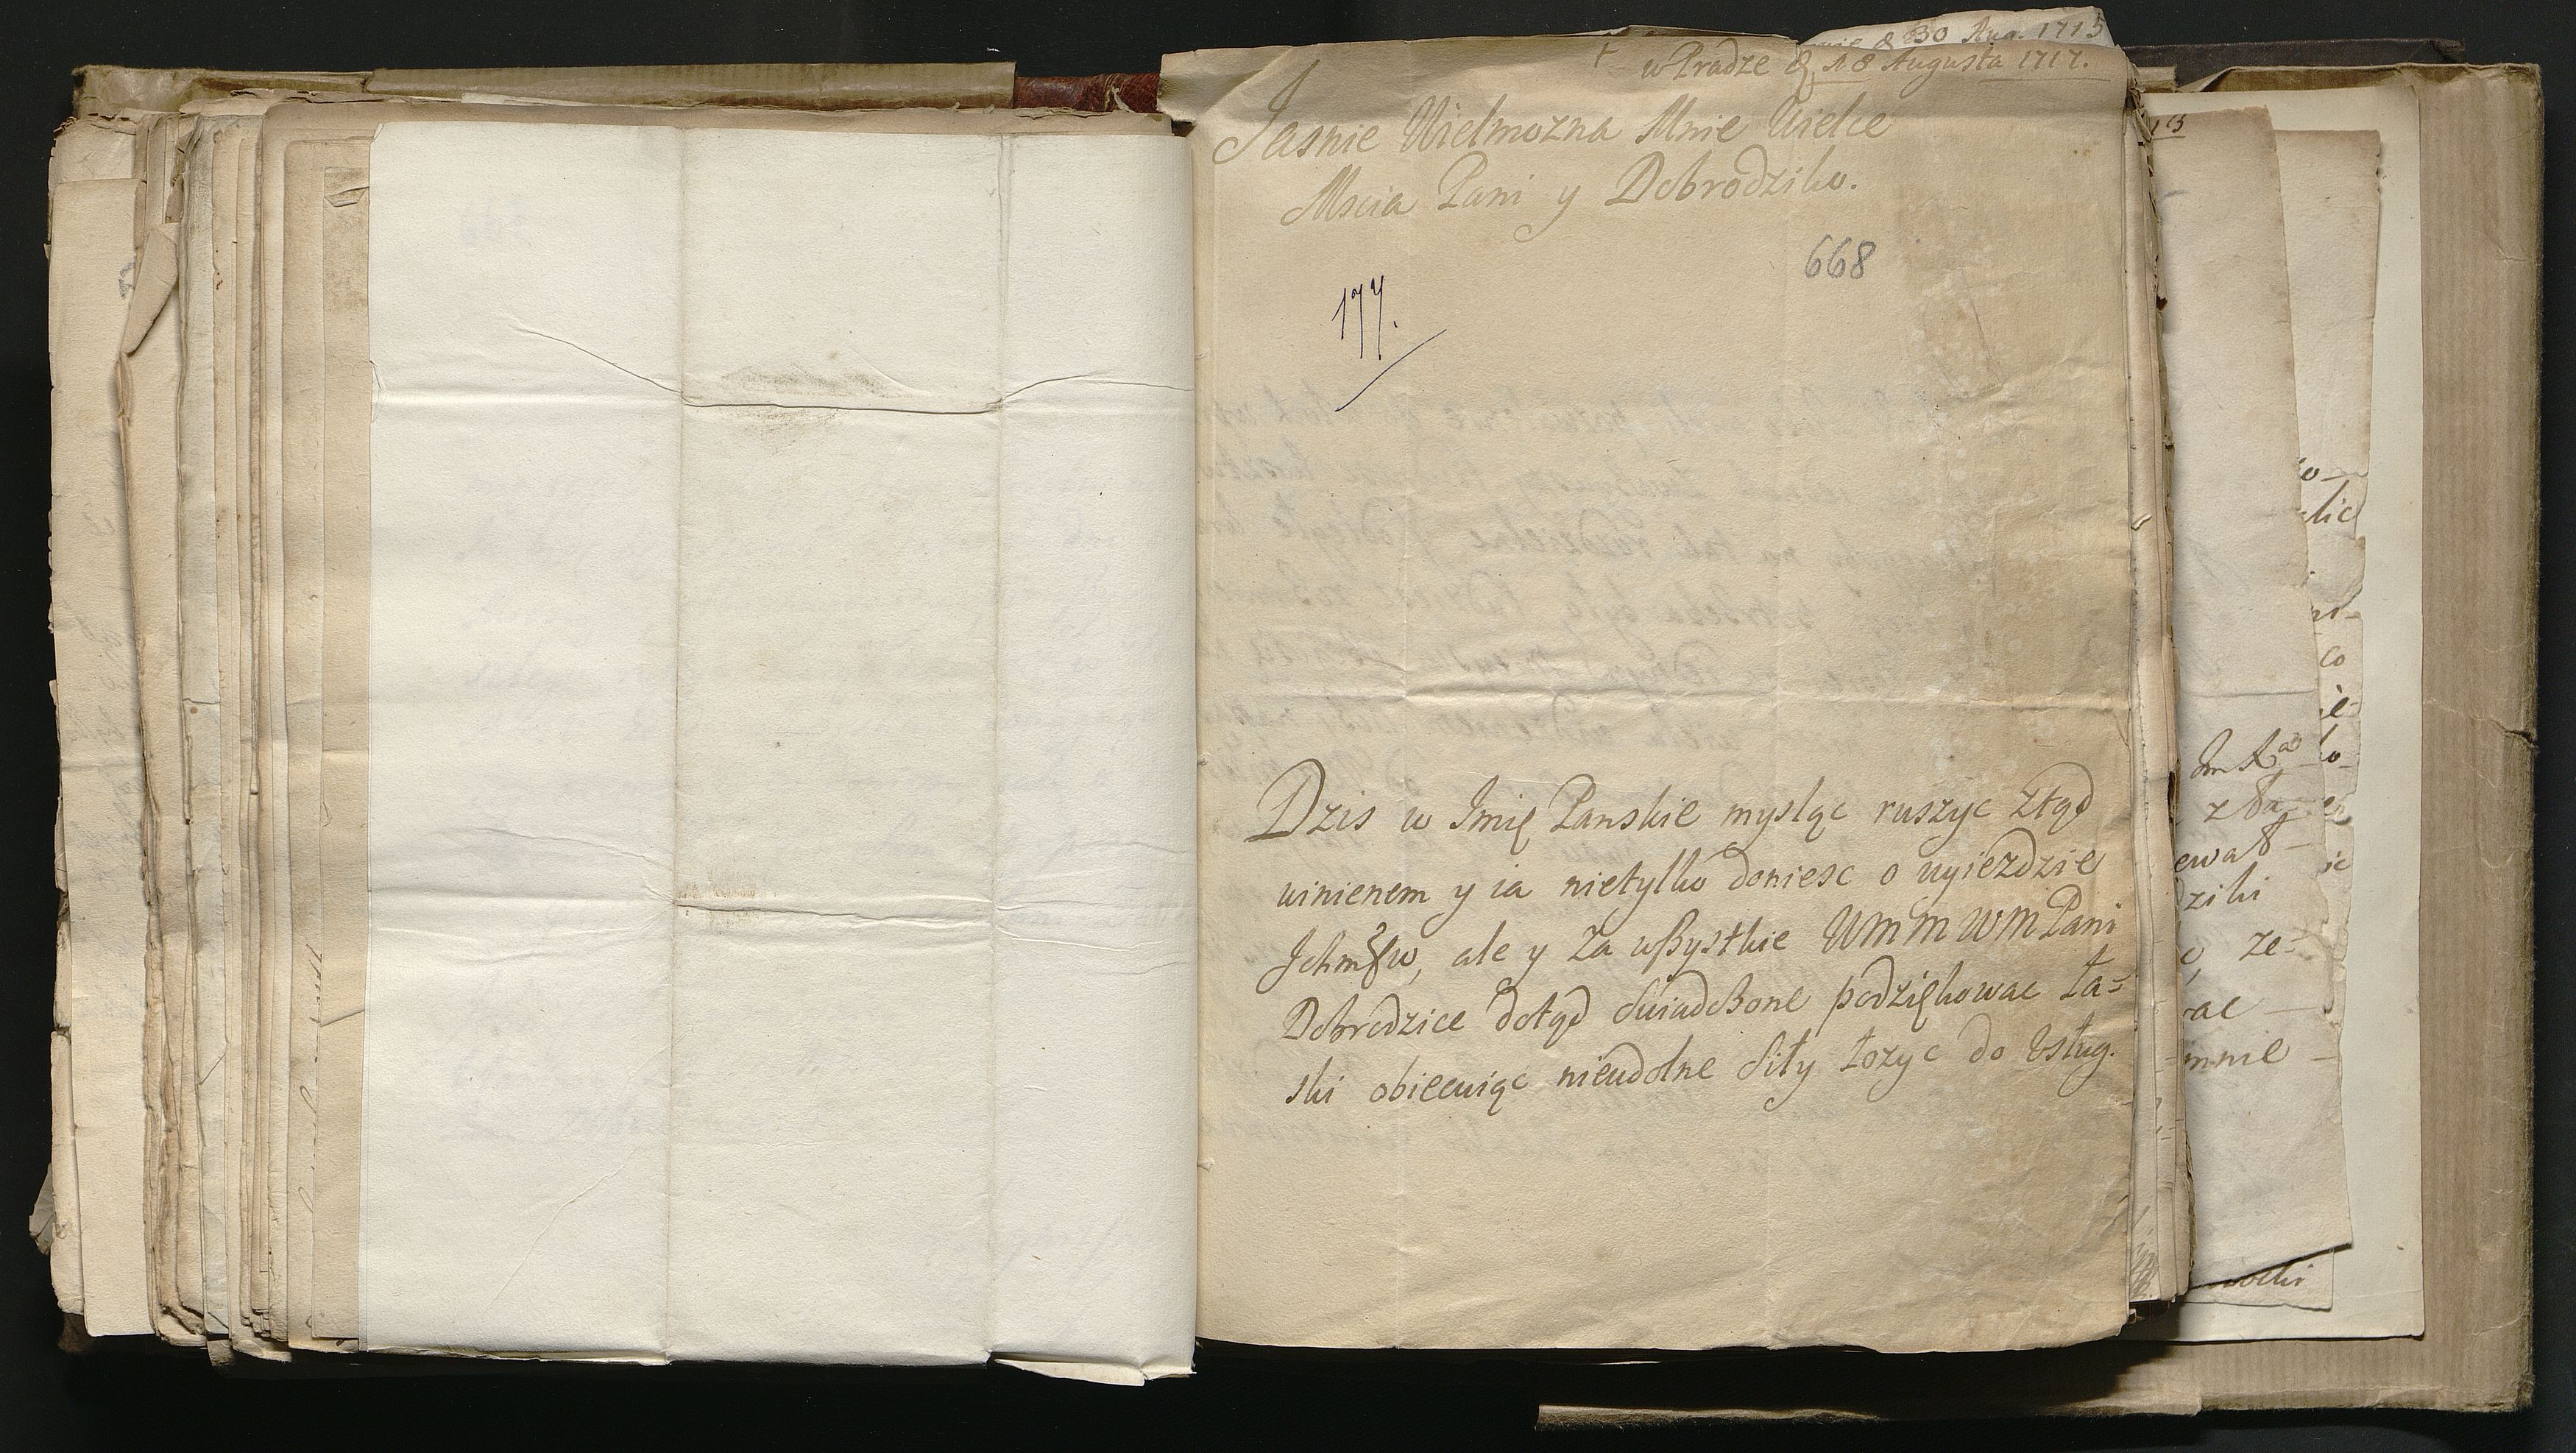 30 Aug. 1715
w Pradze d. 18 Augusta 1717.
Jasnie Wielmozna Mnie Wielce
Mscia Pani y Dobrodziko.
668
177.
Dzis w Imię Panskie mysląc ruszyc ztąd
winienem y ia nietylko doniesc o wyiezdzie
ale y za wszystkie WMMWMPani
Dobrodzice dotąd swiadczone podziękowac ła=
ski obiecuiąc nieudolne siły łozyc do Usług.
lic
co
Jm
ewa
dziki
ze=
rac
mnie